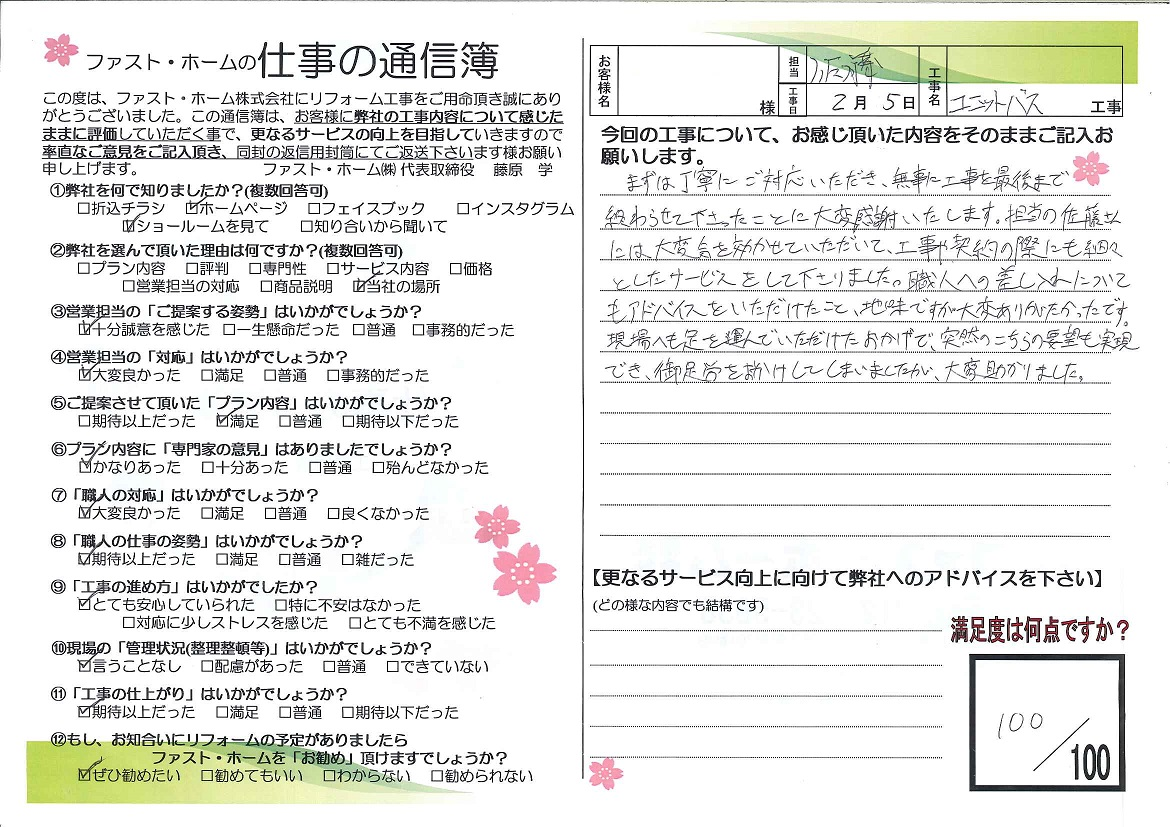 ファスト・ホームの仕事の通信簿
この度は、ファスト・ホーム株式会社にリフォーム工事をご用命頂き誠にあり
がとうございました。この通信簿は、お客様に弊社の工事内容について感じた
ままに評価していただく事で、更なるサービスの向上を目指していきますので
率直なご意見をご記入頂き、同封の返信用封筒にてご返送下さいます様お願い
申し上げます。 ファスト・ホーム㈱ 代表取締役 藤原 学
①弊社を何で知りましたか?(複数回答可)
□折込チラシ ☑ホームページ □フェイスブック □インスタグラム
☑ショールームを見て □知り合いから聞いて
②弊社を選んで頂いた理由は何ですか?(複数回答可)
□プラン内容 □評判 □専門性 □サービス内容 □価格
□営業担当の対応 □商品説明 ☑当社の場所
③営業担当の「ご提案する姿勢」はいかがでしょうか?
☑十分誠意を感じた □一生懸命だった □普通 □事務的だった
④営業担当の「対応」はいかがでしょうか?
☑大変良かった □満足 □普通 □事務的だった
⑤ご提案させて頂いた「プラン内容」はいかがでしょうか?
□期待以上だった ☑満足 □普通 □期待以下だった
⑥プラン内容に「専門家の意見」はありましたでしょうか?
☑かなりあった □十分あった □普通 □殆んどなかった
⑦「職人の対応」はいかがでしょうか?
☑大変良かった □満足 □普通 □良くなかった
⑧「職人の仕事の姿勢」はいかがでしょうか?
☑期待以上だった □満足 □普通 □雑だった
⑨「工事の進め方」はいかがでしたか?
☑とても安心していられた □特に不安はなかった
□対応に少しストレスを感じた □とても不満を感じた
⑩現場の「管理状況(整理整頓等)」はいかがでしょうか?
☑言うことなし □配慮があった □普通 □できていない
⑪「工事の仕上がり」はいかがでしょうか?
☑期待以上だった □満足 □普通 □期待以下だった
⑫もし、お知合いにリフォームの予定がありましたら
ファスト・ホームを「お勧め」頂けますでしょうか?
☑ぜひ勧めたい □勧めてもいい □わからない □勧められない
お客様名 様 担当 佐藤 工事日 2月5日 工事名 ユニットバス 工事
今回の工事について、お感じ頂いた内容をそのままご記入お
願いします。
まずは丁寧にご対応いただき、無事に工事を最後まで
終わらせて下さったことに大変感謝いたします。担当の佐藤さん
には、大変気を効かせていただいて、工事や契約の際にも細々
としたサービスをして下さりました。職人への差し入れについて
もアドバイスをいただけたこと、地味ですが大変ありがたかったです。
現場へも足を運んでいただけたおかげで、突然のこちらの要望も実現
でき、御足労をおかけしてしまいましたが、大変助かりました。
【更なるサービス向上に向けて弊社へのアドバイスを下さい】
(どの様な内容でも結構です)
満足度は何点ですか?
100/100